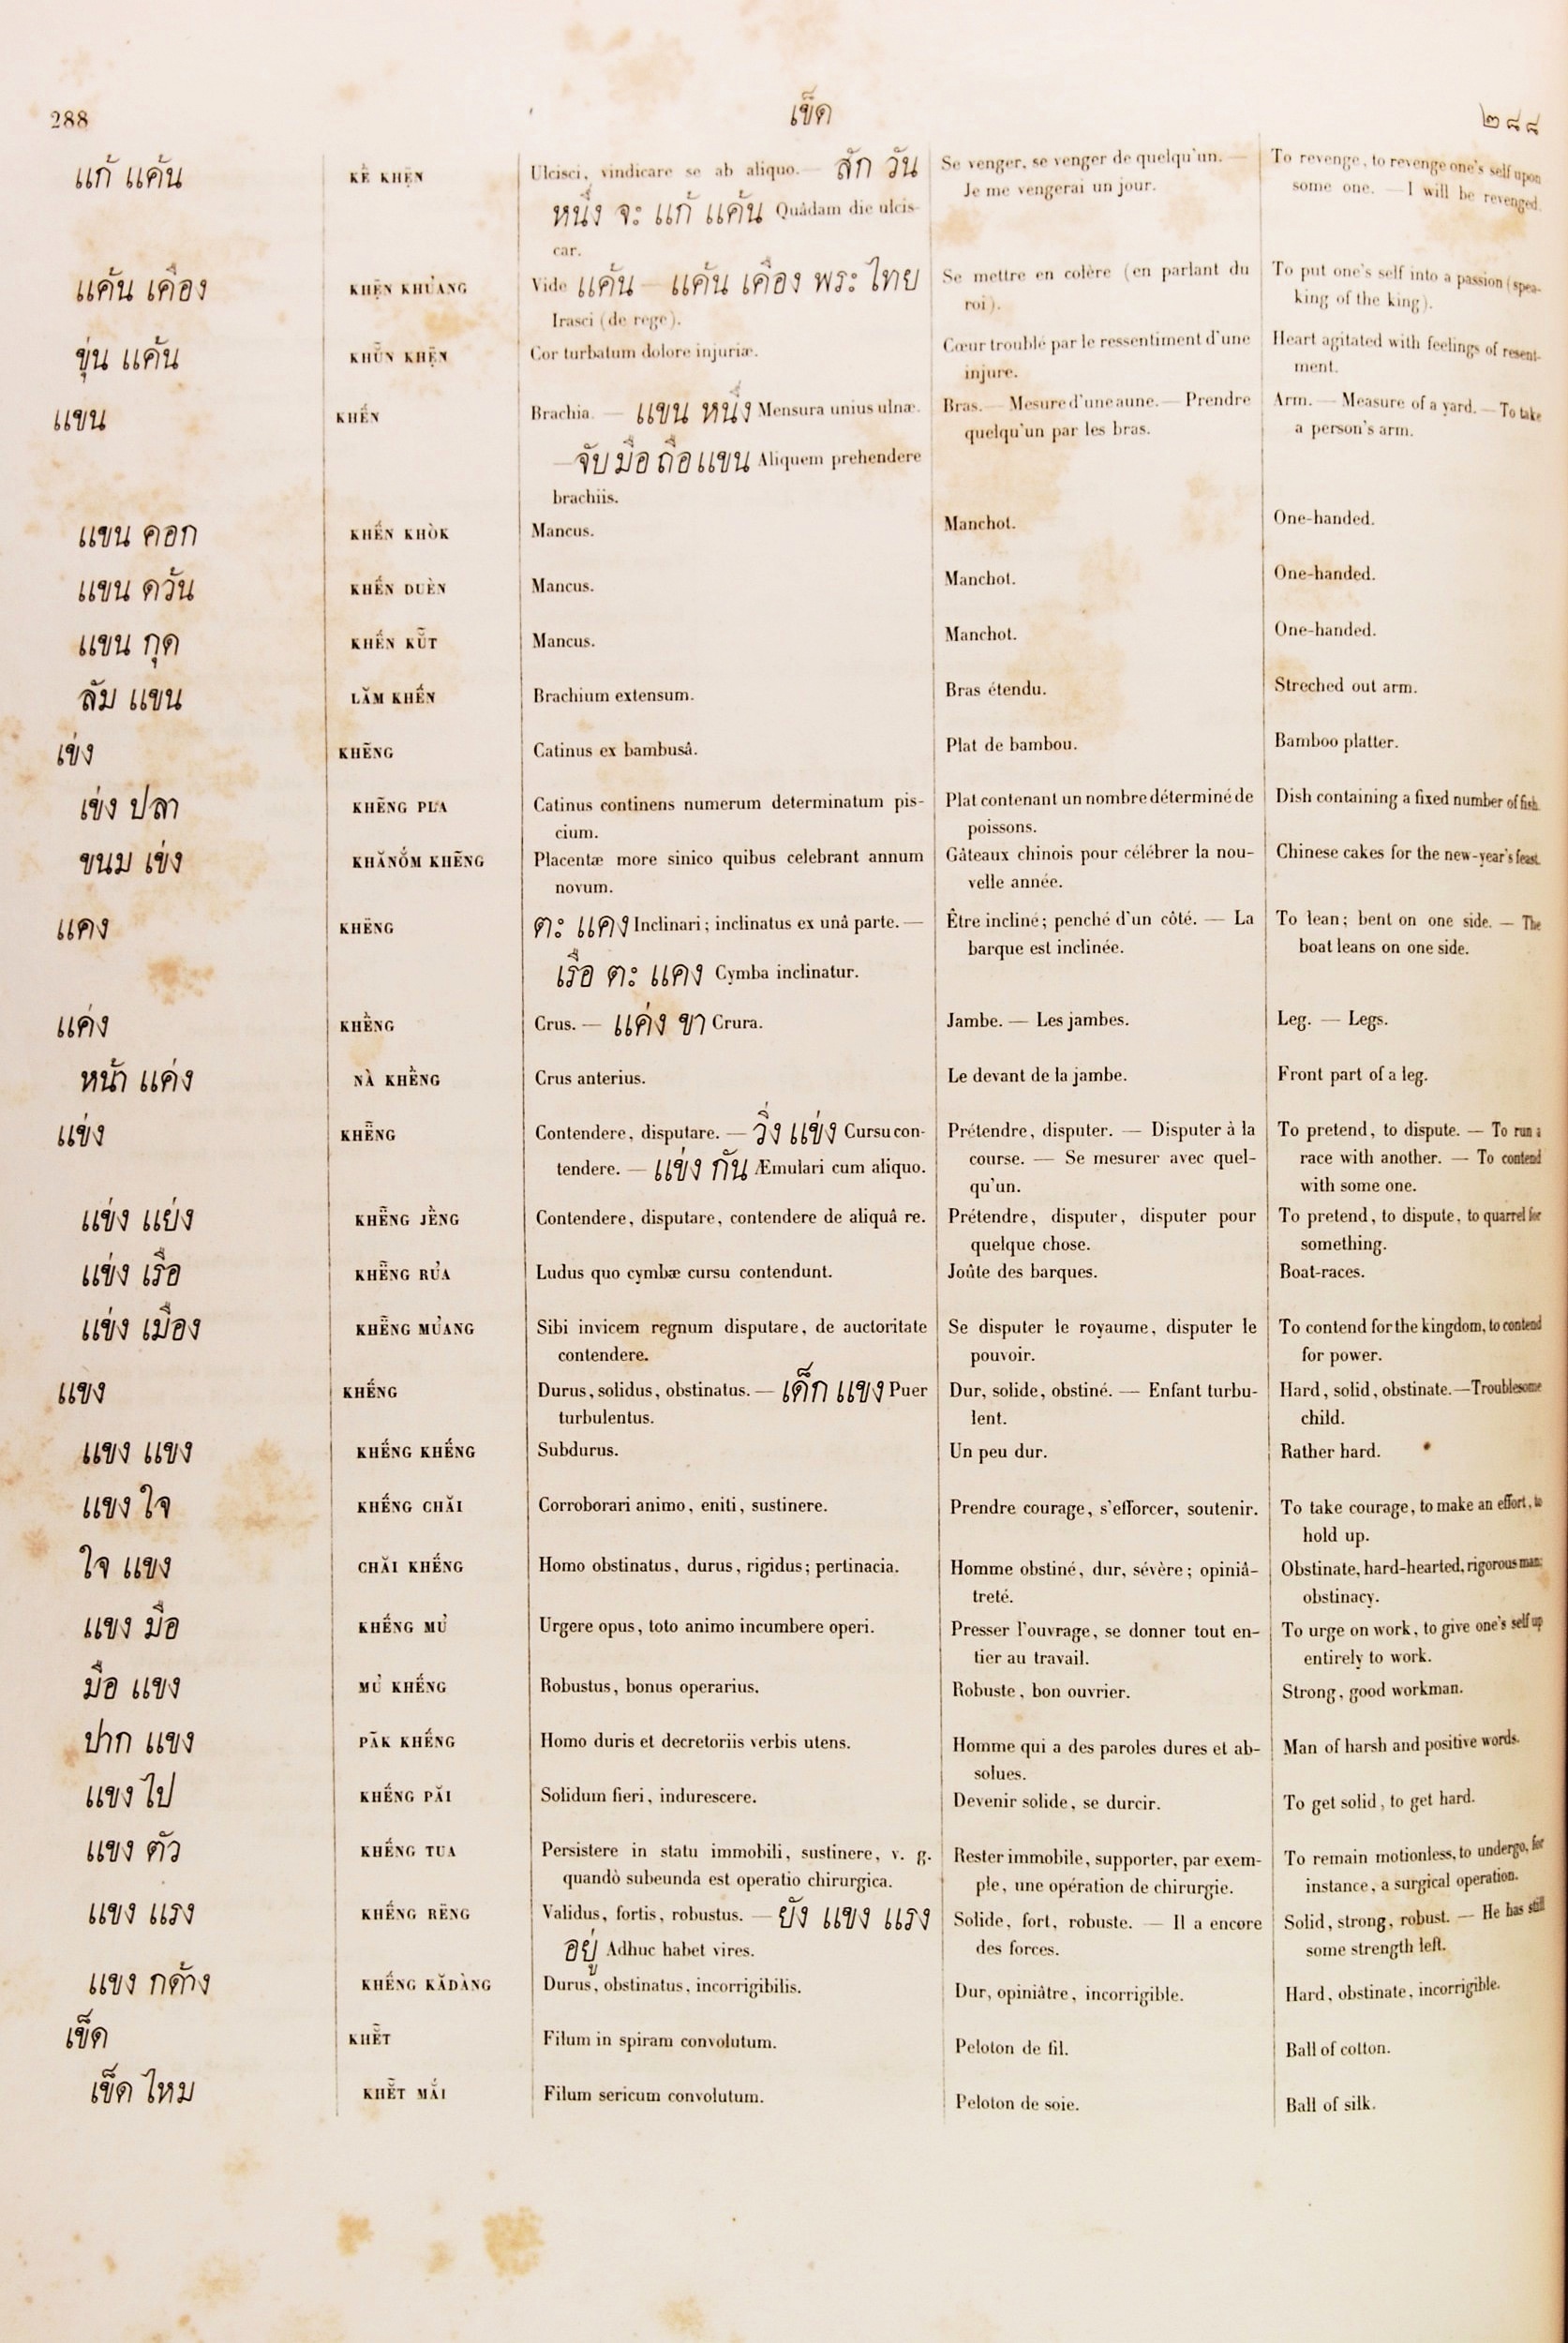 288 เข็ด ๒๘๘
แก้ แค้น KÈ KHẸ̈N Ulcisci, vindicare se ab aliquo. — สัก วัน Se venger, se venger de quelqu'un. — To revenge, to revenge one's self upon
หนึ่ง จะ แก้ แค้น Quâdam die ulcis- Je me vengerai un jour. some one. — I will be revenged.
car.
แค้น เคือง KHẸ̈N KHU̓ANG Vide แค้น — แค้น เคือง พระ ไทย Se mettre en colère (en parlant du To put one's self into a passion (spea-
Irasci (de rege). roi). king of the king).
ขุ่น แค้น KHŨN KHẸ̈N Cor turbatum dolore injuriæ. Cœur troublé par le ressentiment d'une Heart agitated with feelings of resent-
injure. ment.
แขน KHẾN Brachia. — แขน หนึ่ง Mensura unius ulnæ. Bras. — Mesure d'une aune. — Prendre Arm. — Measure of a yard. — To take
— จับ มือ ถือ แขน Aliquem prehendere quelqu'un par les bras. a person's arm.
brachiis.
แขน คอก KHẾN KHÒK Mancus. Manchot. One-handed.
แขน ดวัน KHẾN DUÈN Mancus. Manchot. One-handed.
แขน กุด KHẾN KŨT Mancus. Manchot. One-handed.
ลัม แขน LĂM KHẾN Brachium extensum. Bras étendu. Streched out arm.
เข่ง KHẼNG Catinus ex bambusâ. Plat de bambou. Bamboo platter.
เข่ง ปลา KHẼNG PLA Catinus continens numerum determinatum pis- Plat contenant un nombre déterminé de Dish containing a fixed number of fish.
cium. poissons.
ขนม เข่ง KHĂNỐM KHẼNG Placentæ more sinico quibus celebrant annum Gâteaux chinois pour célébrer la nou- Chinese cakes for the new-year's feast.
novum. velle année.
แคง KHËNG ตะ แคง Inclinari; inclinatus ex unâ parte. — Être incliné; penché d'un côté. — La To lean; bent on one side. — The
เรือ ตะ แคง Cymba inclinatur. barque est inclinée. boat leans on one side.
แค่ง KHỀNG Crus. — แค่ง ขา Crura. Jambe. — Les jambes. Leg. — Legs.
หน้า แค่ง NÀ KHỀNG Crus anterius. Le devant de la jambe. Front part of a leg.
แข่ง KHẼNG Contendere, disputare. — วิ่ง แข่ง Cursu con- Prétendre, disputer. — Disputer à la To pretend, to dispute. — To run a
tendere. — แข่ง กัน Æmulari cum aliquo. course. — Se mesurer avec quel- race with another. — To contend
qu'un. with some one.
แข่ง แย่ง KHẼNG JỀNG Contendere, disputare, contendere de aliquâ re. Prétendre, disputer, disputer pour To pretend, to dispute, to quarrel for
quelque chose. something.
แข่ง เรือ KHẼNG RU̓A Ludus quo cymbæ cursu contendunt. Joûte des barques. Boat-races.
แข่ง เมือง KHẼNG MU̓ANG Sibi invicem regnum disputare, de auctoritate Se disputer le royaume, disputer le To contend for the kingdom, to contend
contendere. pouvoir. for power.
แขง KHẾNG Durus, solidus, obstinatus. — เด็ก แขง Puer Dur, solide, obstiné. — Enfant turbu- Hard, solid, obstinate. — Troublesome
turbulentus. lent. child.
แขง แขง KHẾNG KHẾNG Subdurus. Un peu dur. Rather hard.
แขง ใจ KHẾNG CHĂI Corroborari animo, eniti, sustinere. Prendre courage, s'efforcer, soutenir. To take courage, to make an effort, to
hold up.
ใจ แขง CHĂI KHẾNG Homo obstinatus, durus, rigidus; pertinacia. Homme obstiné, dur, sévère; opiniâ- Obstinate, hard-hearted, rigorous man;
treté. obstinacy.
แขง มือ KHẾNG MU̓ Urgere opus, toto animo incumbere operi. Presser l'ouvrage, se donner tout en- To urge on work, to give one's self up
tier au travail. entirely to work.
มือ แขง MU̓ KHẾNG Robustus, bonus operarius. Robuste, bon ouvrier. Strong, good workman.
ปาก แขง PÃK KHẾNG Homo duris et decretoriis verbis utens. Homme qui a des paroles dures et ab- Man of harsh and positive words.
solues.
แขง ไป KHẾNG PĂI Solidum fieri, indurescere. Devenir solide, se durcir. To get solid, to get hard.
แขง ตัว KHẾNG TUA Persistere in statu immobili, sustinere, v. g. Rester immobile, supporter, par exem- To remain motionless, to undergo, for
quandò subeunda est operatio chirurgica. ple, une opération de chirurgie. instance, a surgical operation.
แขง แรง KHẾNG RËNG Validus, fortis, robustus. — ยัง แขง แรง Solide, fort, robuste. — Il a encore Solid, strong, robust. — He has still
อยู่ Adhuc habet vires. des forces. some strength left.
แขง กด้าง KHẾNG KĂDÀNG Durus, obstinatus, incorrigibilis. Dur, opiniâtre, incorrigible. Hard, obstinate, incorrigible.
เข็ด KHẼT Filum in spiram convolutum. Peloton de fil. Ball of cotton.
เข็ด ไหม KHẼT MẮI Filum sericum convolutum. Peloton de soie. Ball of silk.